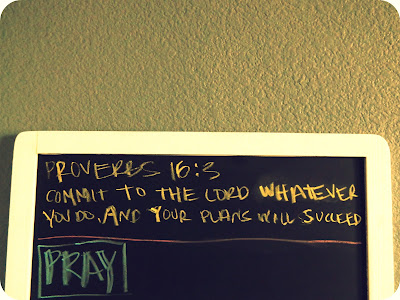 PROVERBS 16:3
COMMIT TO THE LORD WHATEVER
YOU DO, AND YOUR PLANS WILL SUCCEED
PRAY